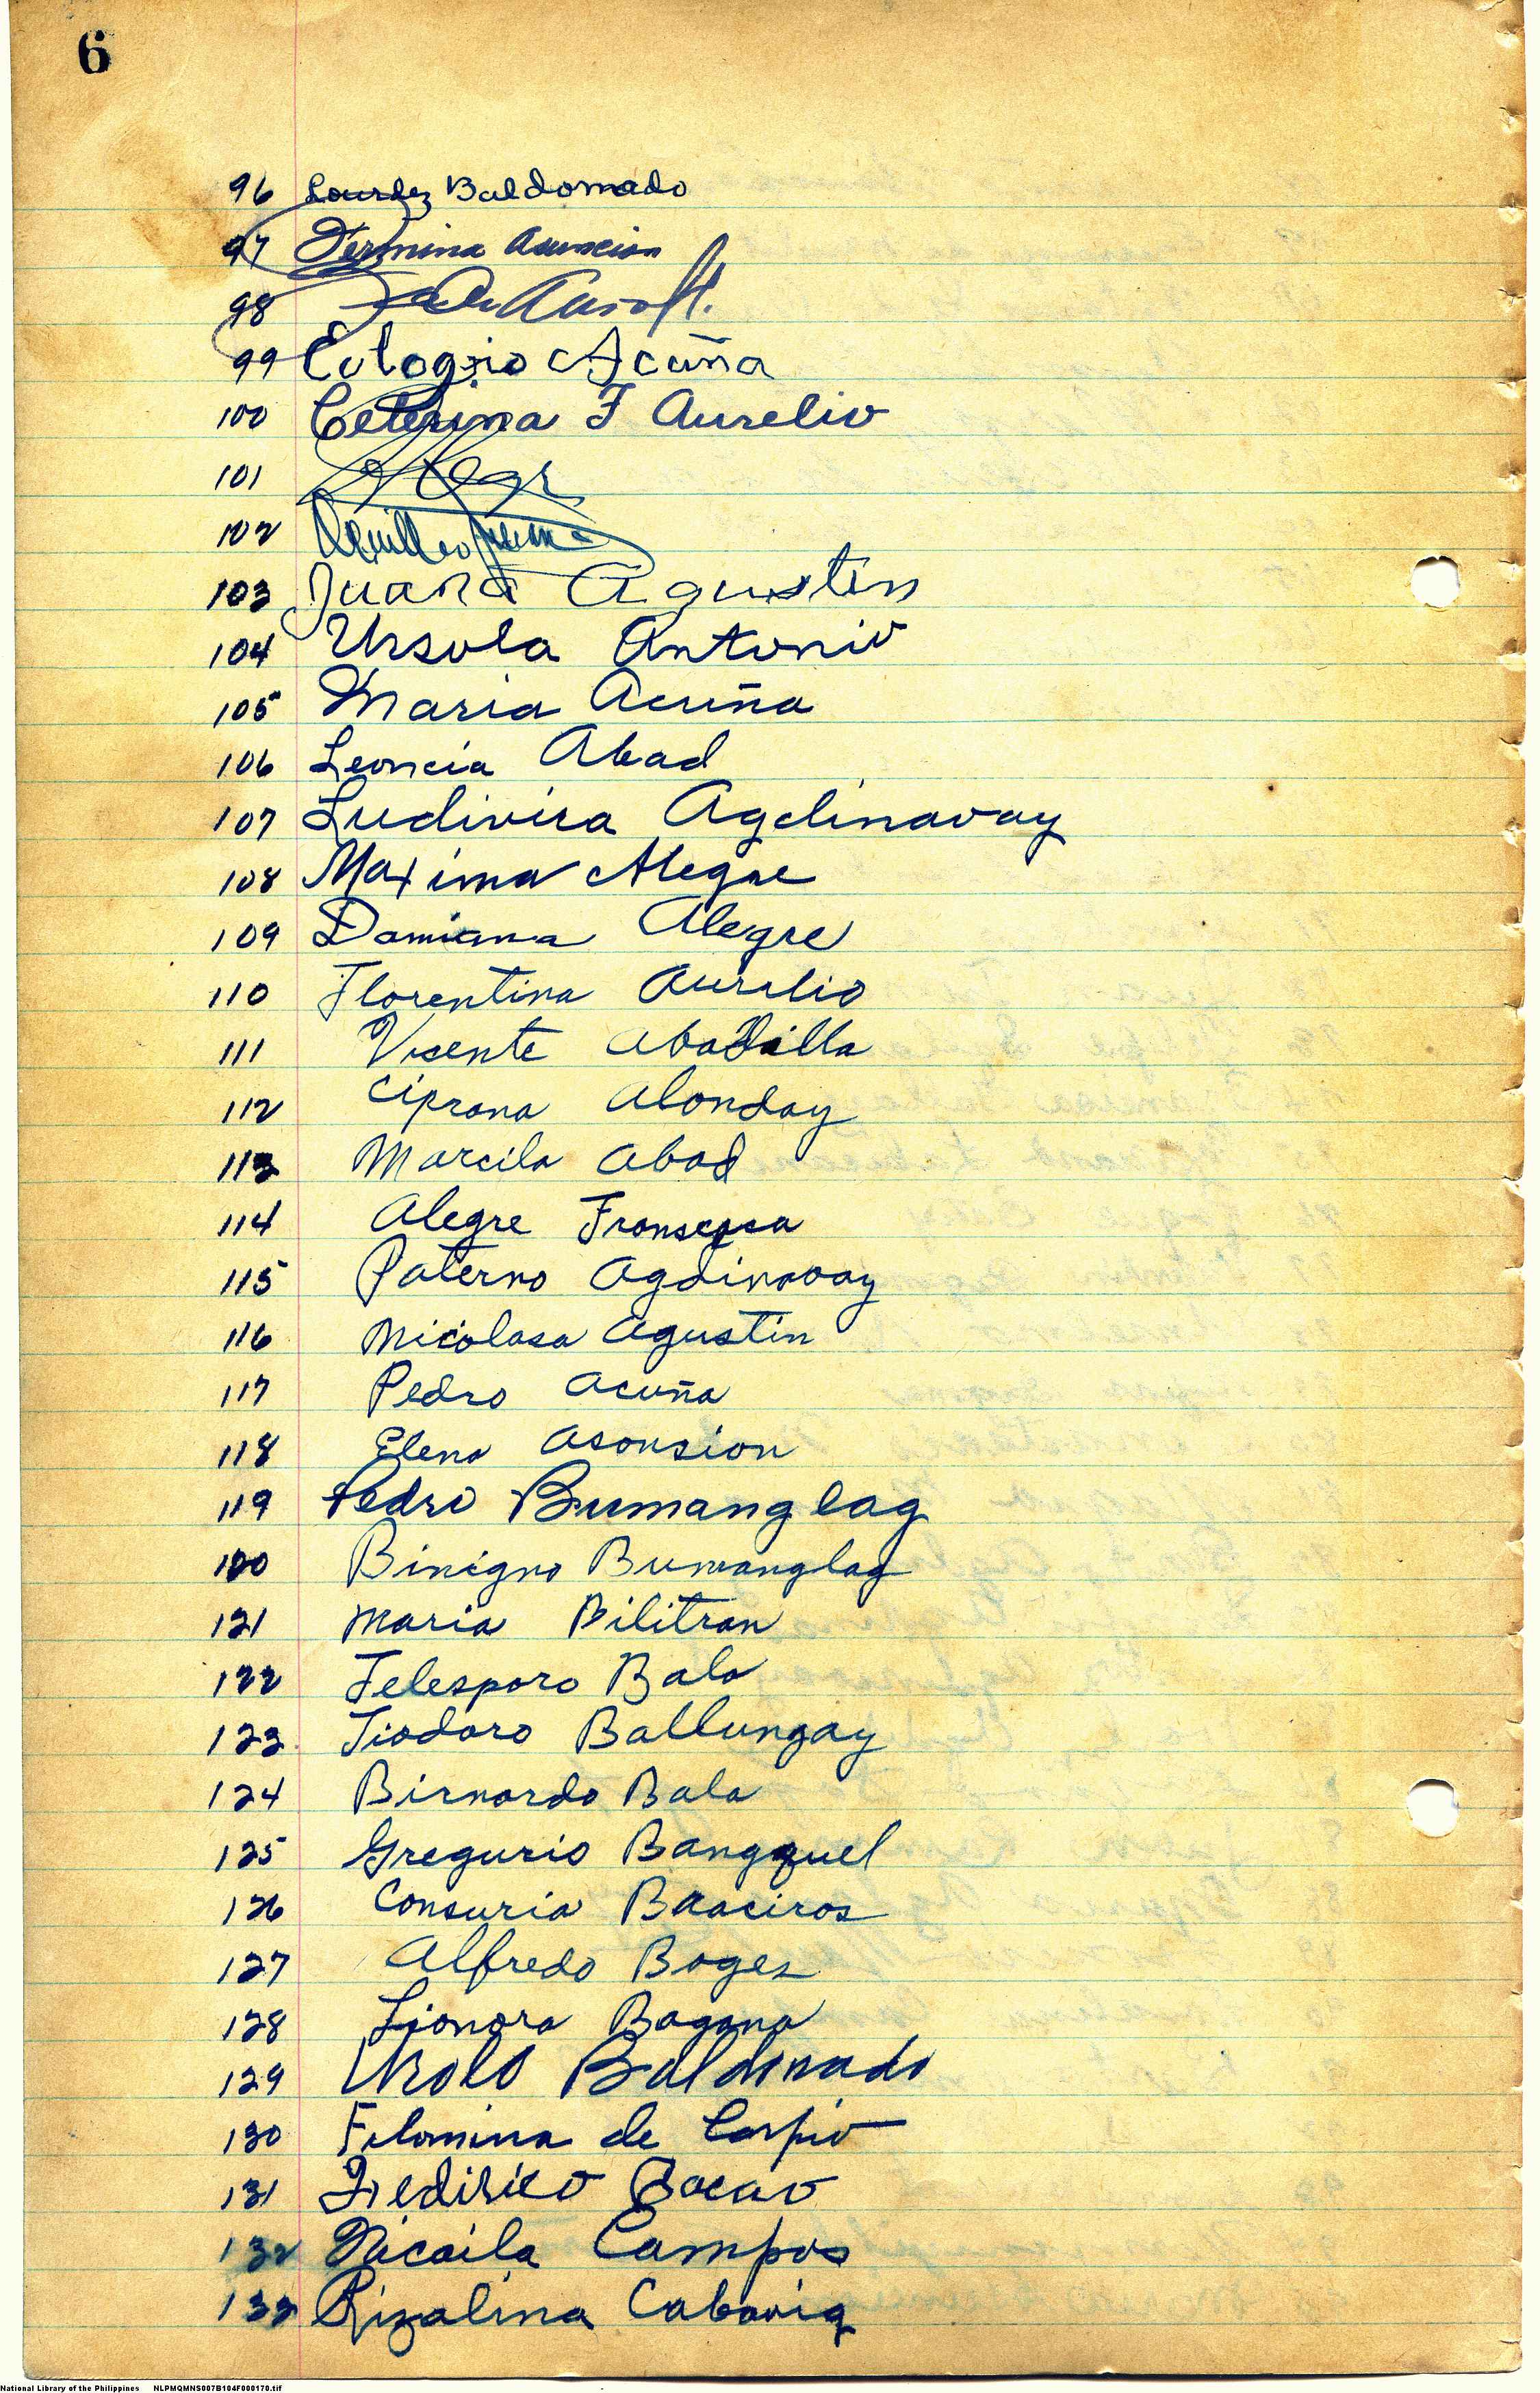 6
96 Lourdez Baldomado
97 Fermina Asuncion
98
99 Eulogio Acuña
100 Ceterina F Aurelio
101
102
103 Juana Agustin
104 Ursola Antonio
105 Maria Acuña
106 Leoncia Abad
107 Ludivina Agdinavay
108 Maxima Alegre
109 Damiana Alegre
110 Florentina Aurelio
111 Visente Abadilla
112 Ciprana Alonday
113 Marcila Abad
114 Alegre
115 Paterno Agdinaoay
116 Nicolasa Agustin
117 Pedro Acuña
118 Elena Asonsion
119 Pedro Bumanglag
120 Binigno Bumanglag
121 Maria Bilitran
122 Telesporo Bala
123 Tiodoro Ballungay
124 Birnardo Bala
125 Gregurio Bangquel
126 Consuria
127 Alfredo Boges
128 Lionora Bagana
129 Baldonado
130 Filomina de Carpio
131
132 Micaila Campos
133 Rizalina Cabavig
National Library of the Philippines NLPMQMNS007B104F000170.tif